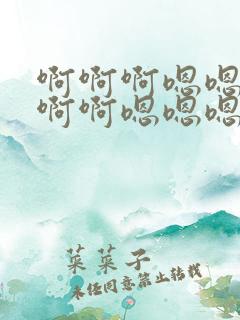 啊啊啊嗯嗯
啊啊嗯嗯嗯
菜菜子
未经同意禁止转载